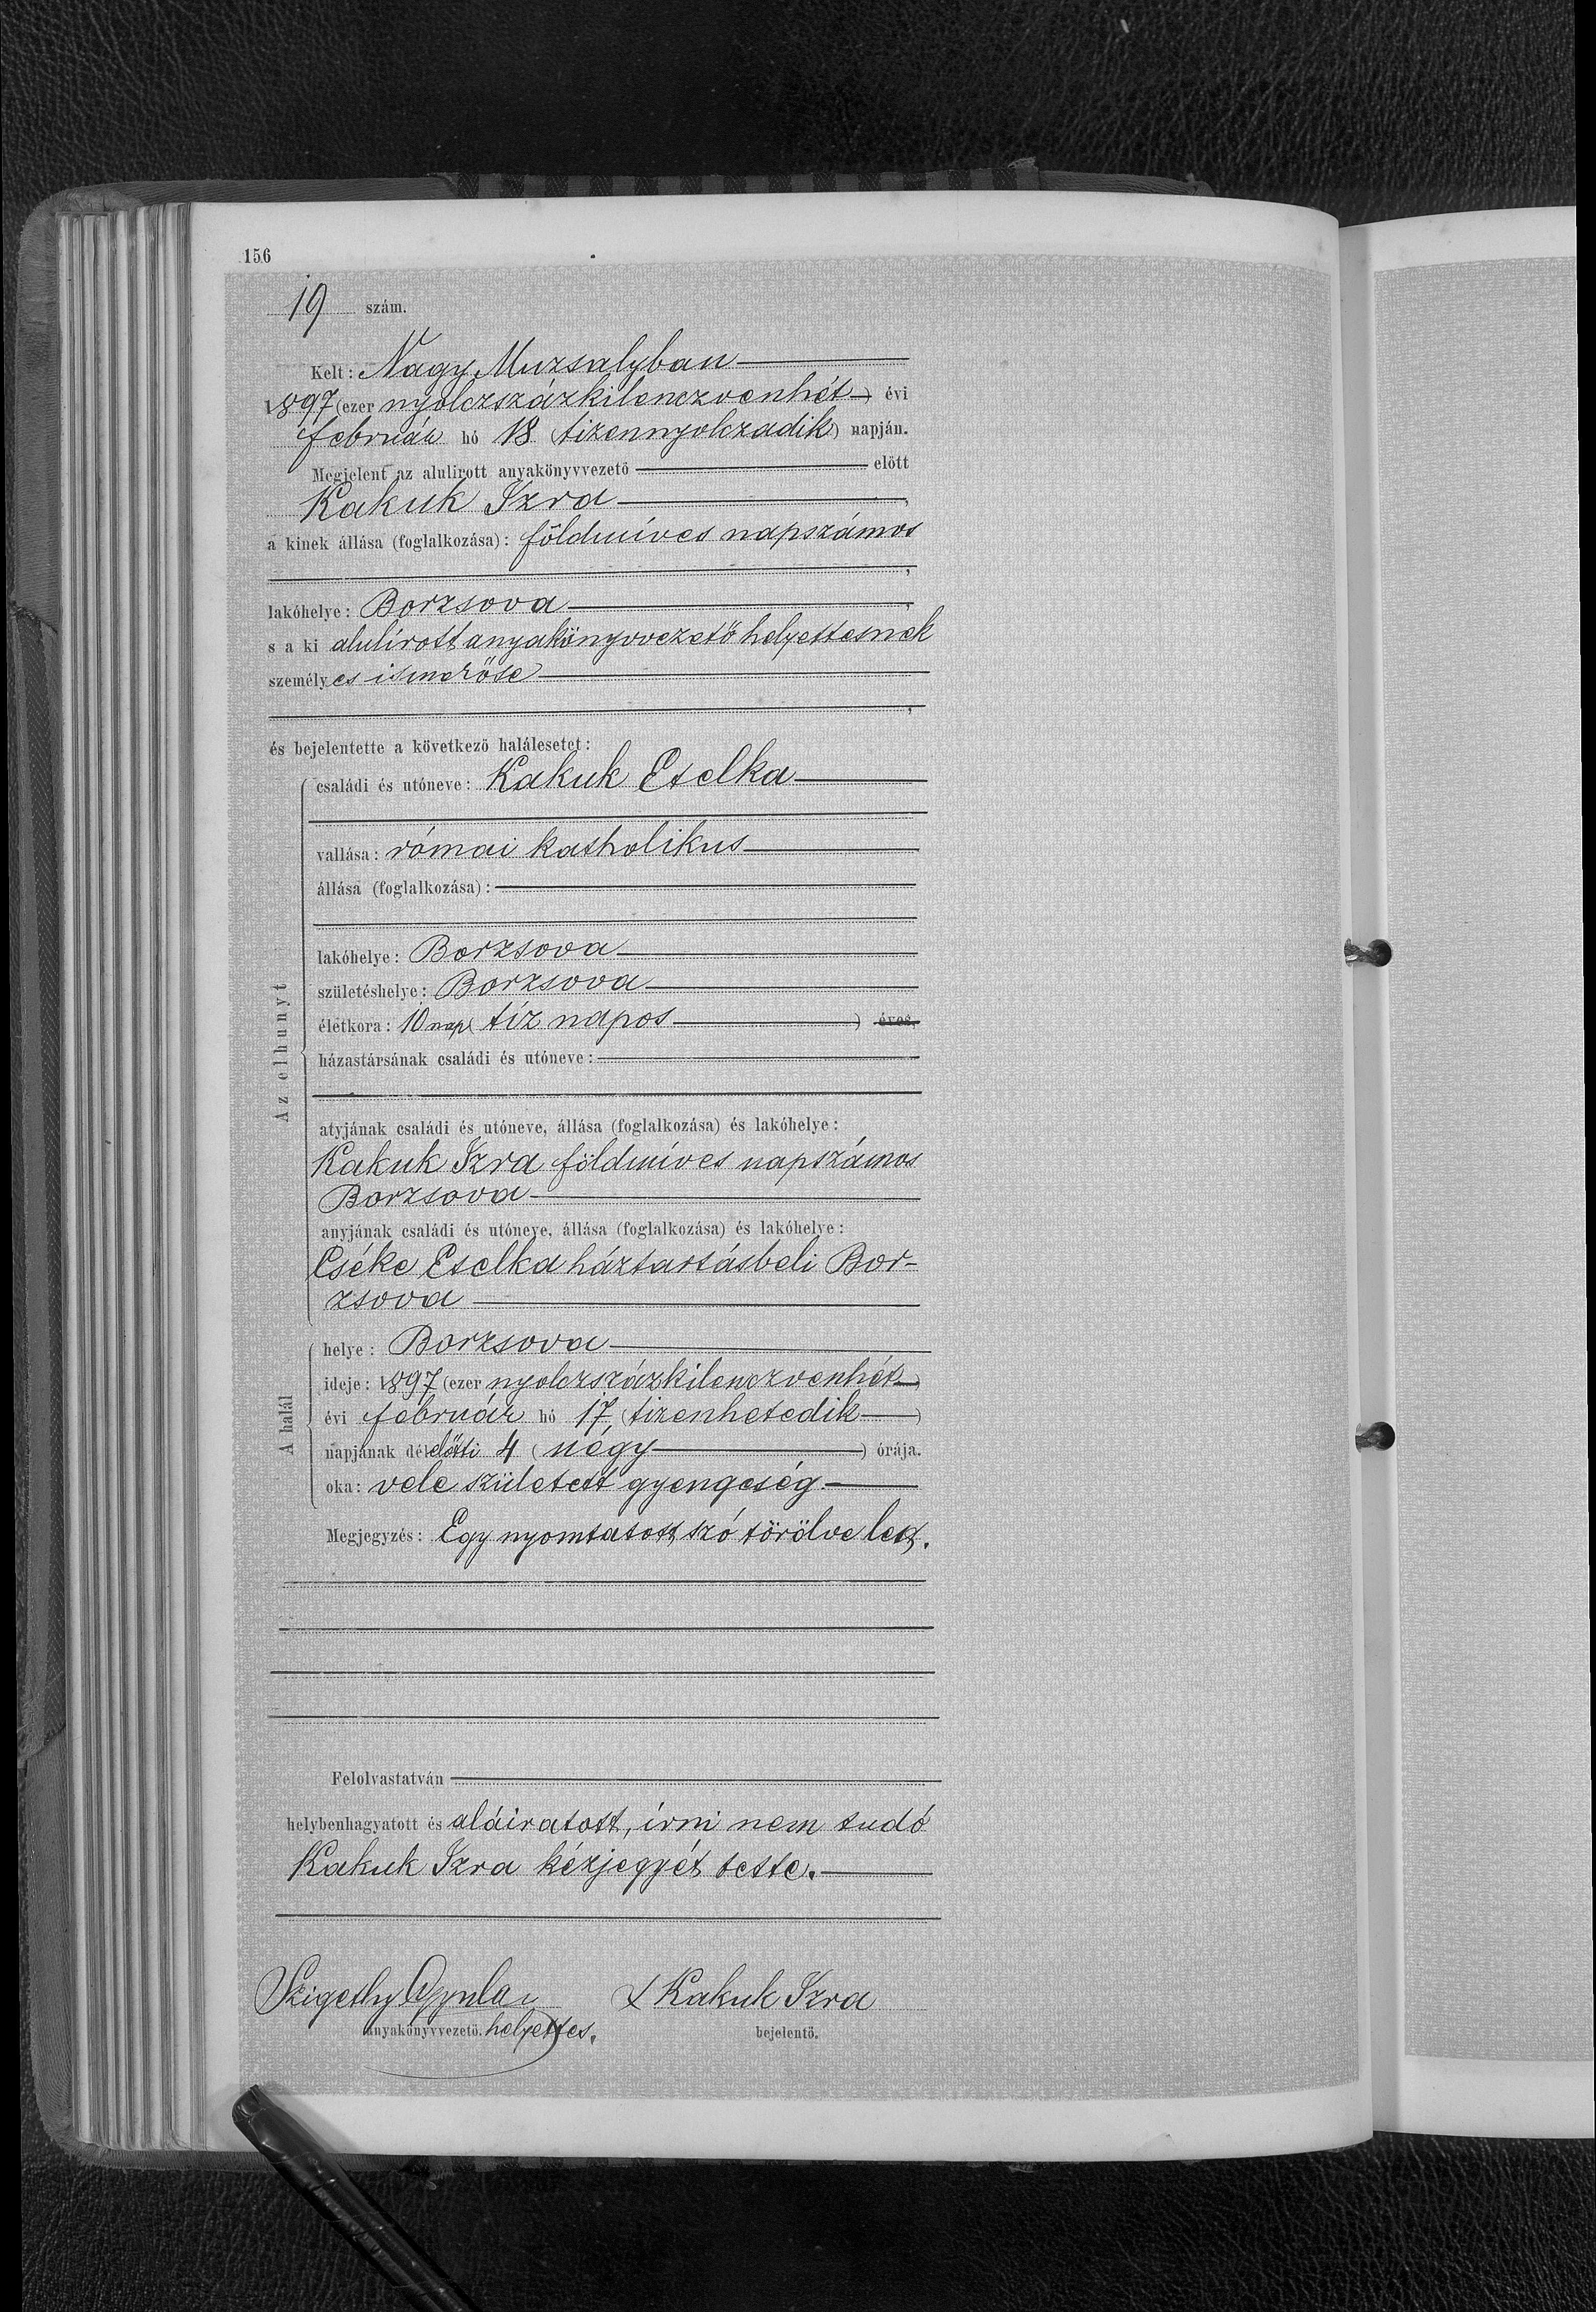 156
19 szám.
Kelt: Nagy Muzsalyban
1897 (ezer nyolczszázkilenczvenhét) évi
február hó 18 (tizennyolczadik) napján.
Megjelent az alulirott anyakönyvvezető előtt
Kakuk Izra,
a kinek állása (foglalkozása): földmíves napszámos
,
lakóhelye: Borzsova,
s a ki alulírott anyakönyvvezető helyettesnek
személyes ismerőse
,
és bejelentette a következő halálesetet:
Az elhunyt
családi és utóneve: Kakuk Etelka
vallása: római katholikus
állása (foglalkozása):
lakóhelye: Borzsova
születéshelye: Borzsova
életkora: 10 nap (tíz napos) éves.
házastársának családi és utóneve:
atyjának családi és utóneve, állása (foglalkozása) és lakóhelye:
Kakuk Izra földmíves napszámos
Borzsova
anyjának családi és utóneve, állása (foglalkozása) és lakóhelye:
Cséke Etelka háztartásbeli Bor-
zsova
A halál
helye: Borzsova
ideje: 1897 (ezer nyolczszázkilenczvenhét)
évi február hó 17 (tizenhetedik)
napjának délelőtti 4 (négy) órája.
oka: vele született gyengeség.
Megjegyzés: Egy nyomtatott szó törölve lett.
Felolvastatván
helybenhagyatott és aláiratott, írni nem tudó
Kakuk Izra kézjegyét tette.
Szigethy Gyula x Kakuk Izra
anyakönyvvezető. helyettes. bejelentő.